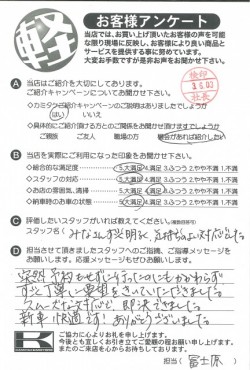 軽
お客様アンケート
当店では、お買い上げ頂いたお客様の声を可能
な限り現場に反映し、お客様により良い商品と
サービスを提供する事に努めています。
大変お手数ですが是非お声をお聞かせ下さい。
検印
社長
A 当店はご紹介を大切にしております。
ご紹介キャンペーンについてお聞かせ下さい。
◇カミタケご紹介キャンペーンのご説明はありましたでしょうか
はい いいえ
◇具体的にご紹介頂ける方とのご関係をお聞かせ頂けますでしょうか
ご親族 ご友人 職場の方 機会があれば紹介したい
B 当店を実際にご利用になった印象をお聞かせ下さい。
◇総合的な満足度 5.大満足 4.満足 3.ふつう 2.やや不満 1.不満
◇スタッフの対応 5.大満足 4.満足 3.ふつう 2.やや不満 1.不満
◇お店の雰囲気、清掃 5.大満足 4.満足 3.ふつう 2.やや不満 1.不満
◇納車時のお車の状態 5.大満足 4.満足 3.ふつう 2.やや不満 1.不満
C 評価したいスタッフがいれば教えてください。(複数回答可)
スタッフ名( みなさん
D 担当させて頂きましたスタッフへのご指摘、ご評価メッセージを
お願い致します。応援メッセージもぜひお願いします。
突然 予約もせずに行ったのにもかかわらず
すごく丁寧に要望をきいていただきました。
スムーズな対応で、即決できました。
新車!快適です!ありがとうございました。
ご協力に心よりお礼を申し上げます。
今後とも宜しくお引き立てご愛顧の程お願い申し上げます。
またのご来店を心からお待ちしております。
担当( 冨士原 )